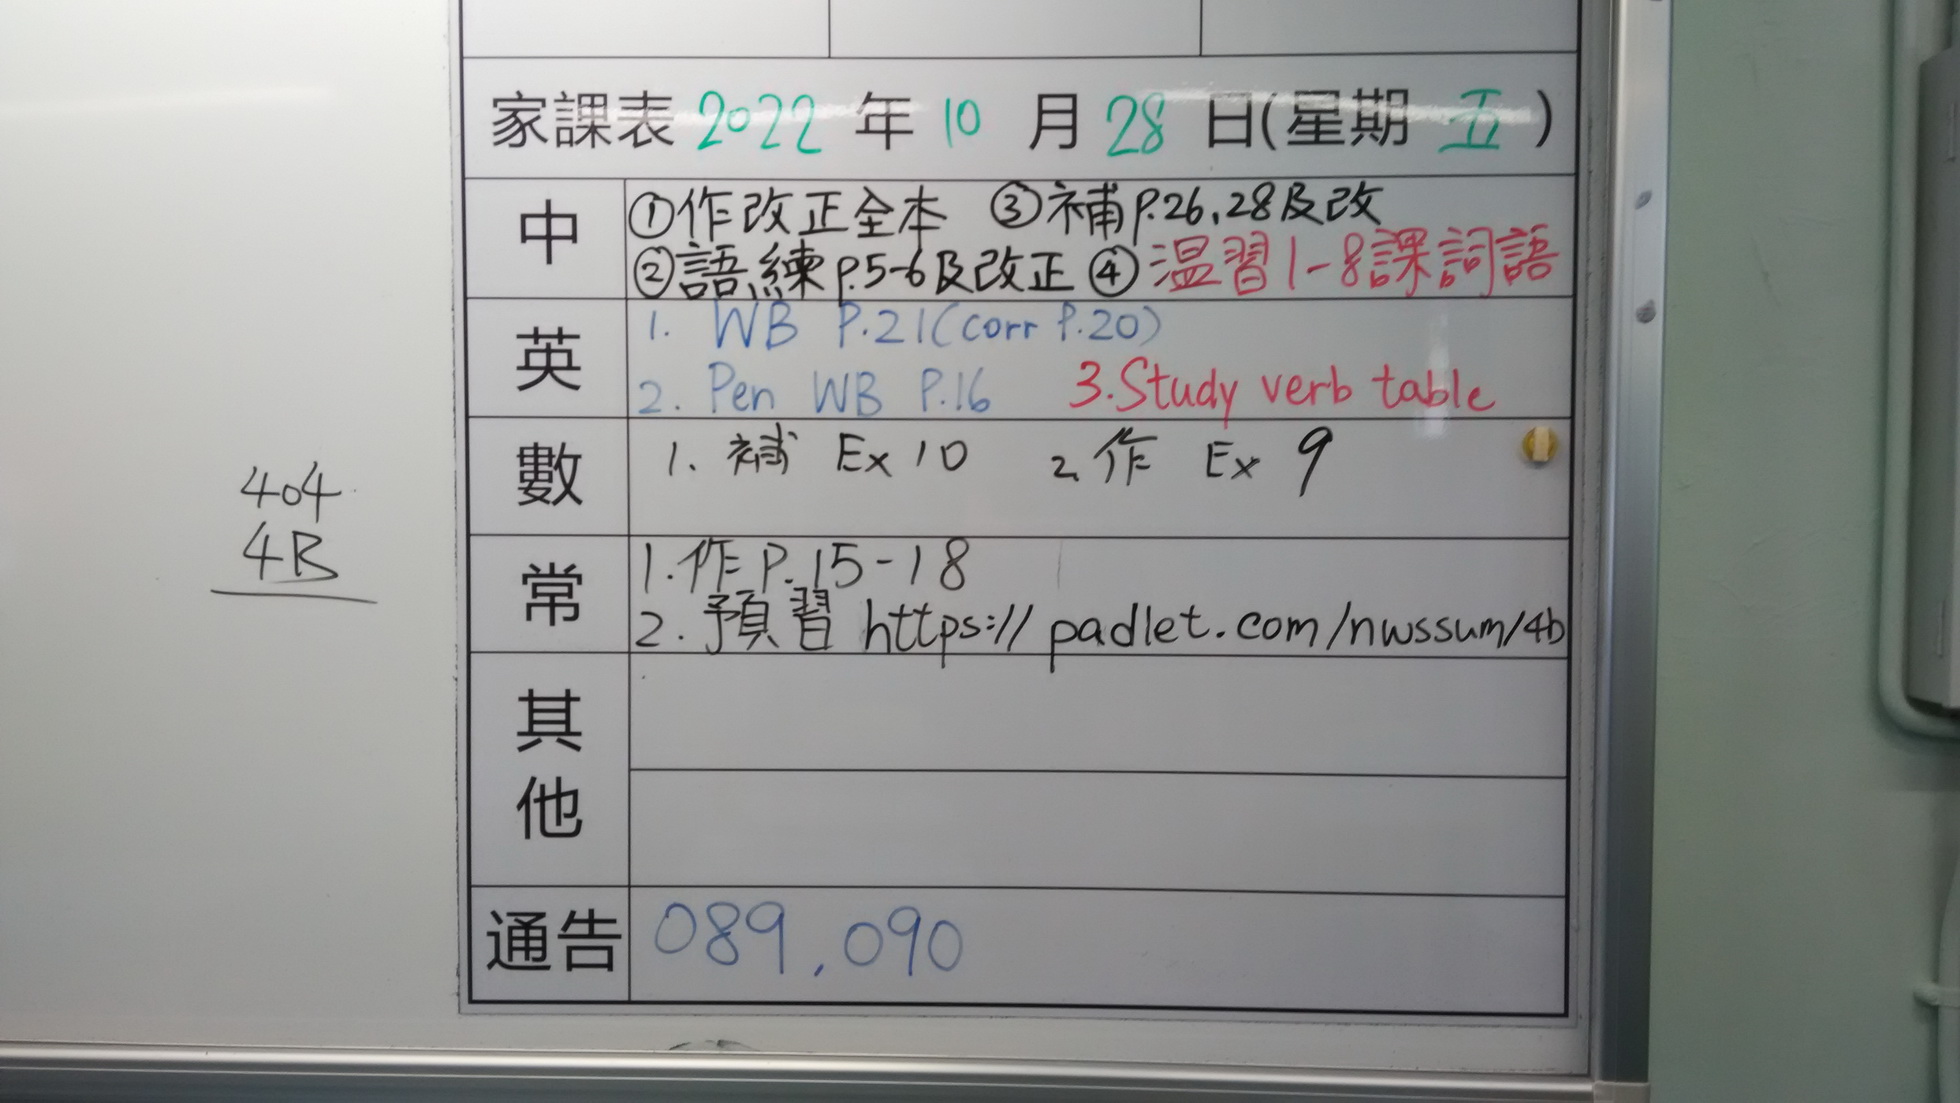 家課表 2022 年 10 月 28 日(星期 五 )
中
①作改正全本 ③補P.26,28及改
②語練P.5-6及改正 ④温習1-8課詞語
英
1. WB P.21(corr P.20)
2. Pen WB P.16 3.Study verb table
數
1. 補 Ex 10 2. 作 Ex 9
常
1.作P.15-18
2.預習 https://padlet.com/nwssum/4b
其他
通告 089,090
404
4B